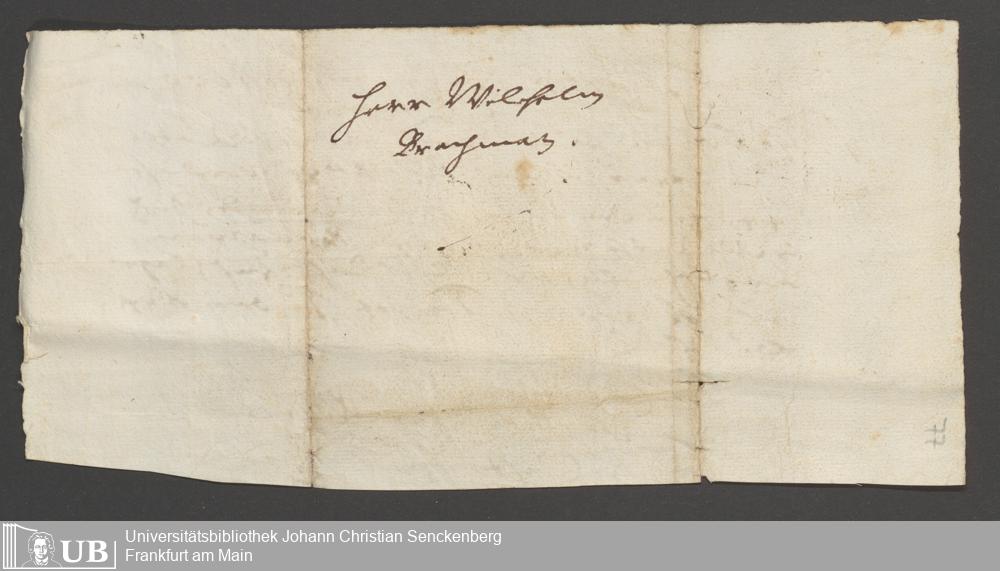 Herr Wilhelm
Brachman.
77
UB
Universitätsbibliothek Johann Christian Senckenberg
Frankfurt am Main